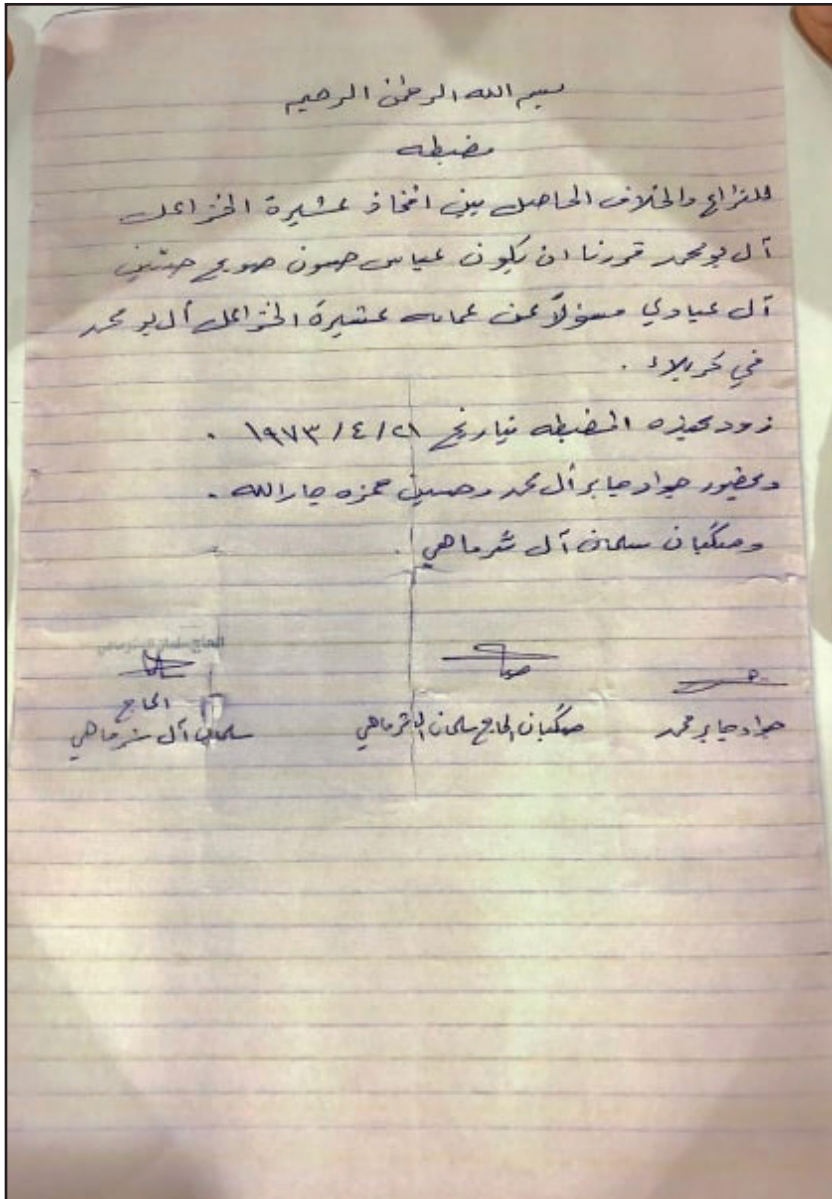 بسم الله الرحمن الرحيم
مضبطه
للنزاع والخلاف الحاصل بين افخاذ عشيرة الخزاعل
آل بو محمد قررنا ان يكون عباس حسون صويح حنتين
آل عبادي مسؤلاً عن عمامه عشيرة الخزاعل آل بو محمد
في كربلاء .
زود بهذه المضبطه بتاريخ ٢١/٤/١٩٧٣ .
وبحضور جواد جابر آل محمد وحسين حمزه جارالله .
وصكبان سلمان آل شرماهي .
جواد جابر محمد
صكبان الحاج سلمان ال شرماهي
الحاج
سلمان آل شرماهي